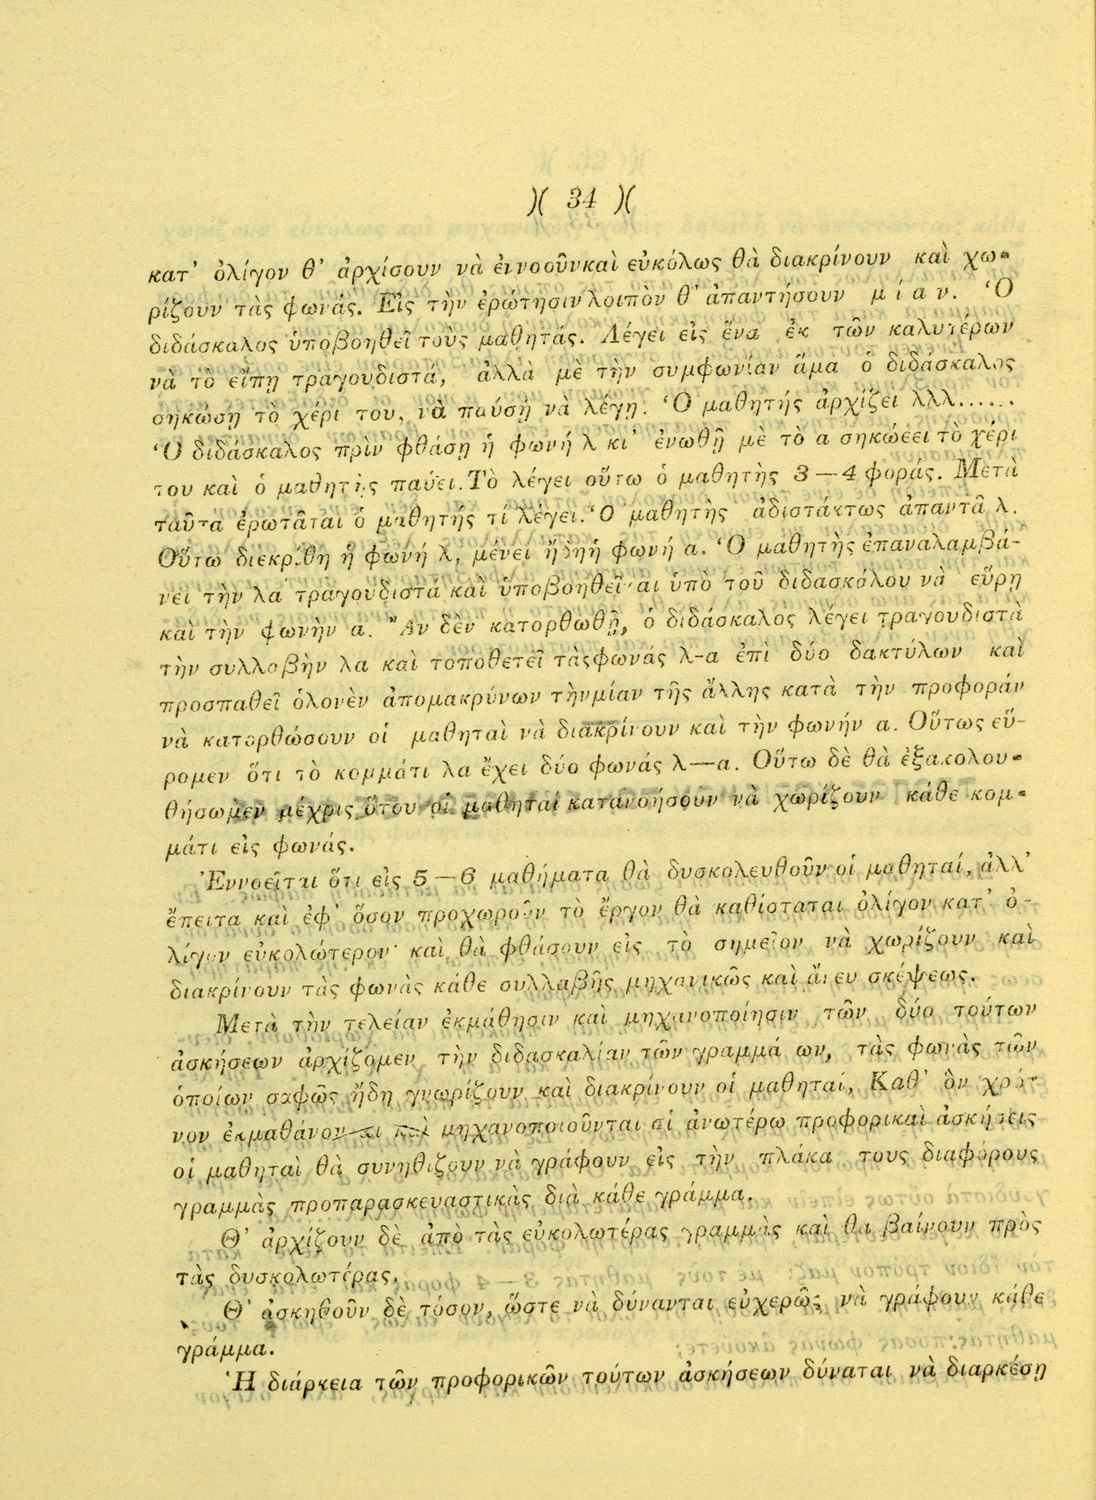 )( 34 )(
κατ' ὀλίγον θ' ἀρχίσουν νὰ ἐννοοῦνκαὶ εὐκόλως θὰ διακρίνουν καὶ χω-
ρίζουν τὰς φωνάς. Εἰς τὴν ἐρώτησιν λοιπὸν θ' ἀπαντήσουν μ ί α ν. Ὁ
διδάσκαλος ὑποβοηθεῖ τοὺς μαθητάς. Λέγει εἰς ἕνα ἐκ τῶν καλυτέρων
νὰ τὸ εἴπῃ τραγουδιστά, ἀλλὰ μὲ τὴν συμφωνίαν ἅμα ὁ διδάσκαλος
σηκώσῃ τὸ χέρι του, νὰ παύσῃ νὰ λέγῃ. Ὁ μαθητής ἀρχίζει λλλ......
Ὁ διδάσκαλος πρὶν φθάσῃ ἡ φωνή λ κι' ἑνωθῇ μὲ τὸ α σηκώσει τὸ χέρι
του καὶ ὁ μαθητὴς παύει. Τὸ λέγει οὕτω ὁ μαθητὴς 3—4 φοράς. Μετὰ
ταῦτα ἐρωτᾶται ὁ μαθητής τί λέγει. Ὁ μαθητὴς ἀδιστάκτως ἀπαντᾶ λ.
Οὕτω διεκρίθη ἡ φωνή λ, μένει ἤδηἡ φωνή α. Ὁ μαθητὴς ἐπαναλαμβά-
νει τὴν λα τραγουδιστά καὶ ὑποβοηθεῖται ὑπὸ τοῦ διδασκάλου νὰ εὕρῃ
καὶ τὴν φωνὴν α. Ἂν δὲν κατορθωθῇ, ὁ διδάσκαλος λέγει τραγουδιστὰ
τὴν συλλαβὴν λα καὶ τοποθετεῖ τὰςφωνάς λ-α ἐπὶ δύο δακτύλων καὶ
προσπαθεῖ ὁλονὲν ἀπομακρύνων τὴνμίαν τῆς ἄλλης κατὰ τὴν προφοράν
νὰ κατορθώσουν οἱ μαθηταὶ νὰ διακρίνουν καὶ τὴν φωνήν α. Οὕτως εὕ-
ρομεν ὅτι τὸ κομμάτι λα ἔχει δύο φωνάς λ—α. Οὕτω δὲ θὰ ἐξακολου-
θήσωμεν μέχρις ὅτου οἱ μαθηταί κατανοήσουν νὰ χωρίζουν κάθε κομ-
μάτι εἰς φωνάς.
Ἐννοεῖται ὅτι εἰς 5—6 μαθήματα θὰ δυσκολευθοῦν οἱ μαθηταί, ἀλλ'
ἔπειτα καὶ ἐφ' ὅσον προχωροῦν τὸ ἔργον θὰ καθίσταται ὀλίγον κατ' ὀ-
λίγον εὐκολώτερον· καὶ θὰ φθάσουν εἰς τὸ σημεῖον νὰ χωρίζουν καὶ
διακρίνουν τὰς φωνὰς κάθε συλλαβῆς μηχανικῶς καὶ ἄνευ σκέψεως.
Μετὰ τὴν τελείαν ἐκμάθησιν καὶ μηχανοποίησιν τῶν δύο τούτων
ἀσκήσεων ἀρχίζομεν τὴν διδασκαλίαν τῶν γραμμά ων, τὰς φωνὰς τῶν
ὁποίων σαφῶς ἤδη γνωρίζουν καὶ διακρίνουν οἱ μαθηταί, Καθ' ὃν χρό-
νον ἐκμαθάνονται καὶ μηχανοποιοῦνται αἱ ἀνωτέρω προφορικαὶ ἀσκήσεις
οἱ μαθηταὶ θὰ συνηθιζουν νὰ γράφουν εἰς τὴν πλάκα τους διαφόρους
γραμμὰς προπαρασκευαστικὰς διὰ κάθε γράμμα.
Θ' ἀρχίζουν δὲ ἀπὸ τὰς εὐκολωτέρας γραμμὰς καὶ θα βαίνουν πρὸς
τὰς δυσκολωτέρας.
Θ' ἀσκηθοῦν δὲ τόσον, ὥστε νὰ δύνανται εὐχερῶς νὰ γράφουν κάθε
γράμμα.
Ἡ διάρκεια τῶν προφορικῶν τούτων ἀσκήσεων δύναται νὰ διαρκέσῃ